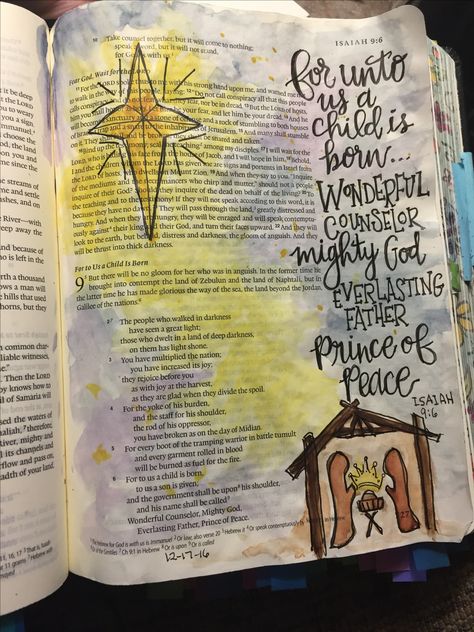 it be deep
the LORD
to weary
you a sign.
choose the
the land
you and
since the
streams of
and on
River—with
away the
and because of
is left in the
a thousand
a man will
hills that used
horns, but they
common char-
witnesses,
Then the LORD
knows how to
of Samaria will
the waters of
therefore,
River, mighty and
its channels and
flow and pass on,
of your land,
10 Take counsel together, but it will come to nothing;
speak a word, but it will not stand,
for God is with us.
Fear God, Wait for the LORD
11 For the LORD spoke thus to me with his strong hand upon me, and warned me
to walk in the way
conspiracy all that this people
calls conspiracy, and do not fear what they fear, nor be in dread. 13 But the LORD of hosts,
him you shall honor as holy. Let him be your fear, and let him be your dread. 14 And he
will become a sanctuary and a stone of offense and a rock of stumbling to both houses
of Israel, a trap and a snare to the inhabitants of Jerusalem. 15 And many shall stumble
on it. They shall fall and be broken; they shall be snared and taken."
16 Bind up the testimony; seal the teaching among my disciples. 17 I will wait for the
LORD, who is hiding his face from the house of Jacob, and I will hope in him. 18 Behold,
I and the children whom the LORD has given me are signs and portents in Israel from
the LORD of hosts, who dwells on Mount Zion. 19 And when they say to you, "Inquire
of the mediums and the necromancers who chirp and mutter," should not a people
inquire of their God? Should they inquire of the dead on behalf of the living? 20 To
the teaching and to the testimony! If they will not speak according to this word, it is
because they have no dawn. 21 They will pass through the land, greatly distressed and
hungry. And when they are hungry, they will be enraged and will speak contemp-
tuously against their king and their God, and turn their faces upward. 22 And they will
look to the earth, but behold, distress and darkness, the gloom of anguish. And they
will be thrust into thick darkness.
For to Us a Child Is Born
9 But there will be no gloom for her who was in anguish. In the former time he
brought into contempt the land of Zebulun and the land of Naphtali, but in
the latter time he has made glorious the way of the sea, the land beyond the Jordan,
Galilee of the nations.
2 The people who walked in darkness
have seen a great light;
those who dwelt in a land of deep darkness,
on them has light shone.
3 You have multiplied the nation;
you have increased its joy;
they rejoice before you
as with joy at the harvest,
as they are glad when they divide the spoil.
4 For the yoke of his burden,
and the staff for his shoulder,
the rod of his oppressor,
you have broken as on the day of Midian.
5 For every boot of the tramping warrior in battle tumult
and every garment rolled in blood
will be burned as fuel for the fire.
6 For to us a child is born,
to us a son is given;
and the government shall be upon his shoulder,
and his name shall be called
Wonderful Counselor, Mighty God,
Everlasting Father, Prince of Peace.
12-17-16
ISAIAH 9:6
for unto
us a
child is
born...
WONDERFUL
COUNSELOR
mighty God
EVERLASTING
FATHER
prince of
Peace
ISAIAH
9:6